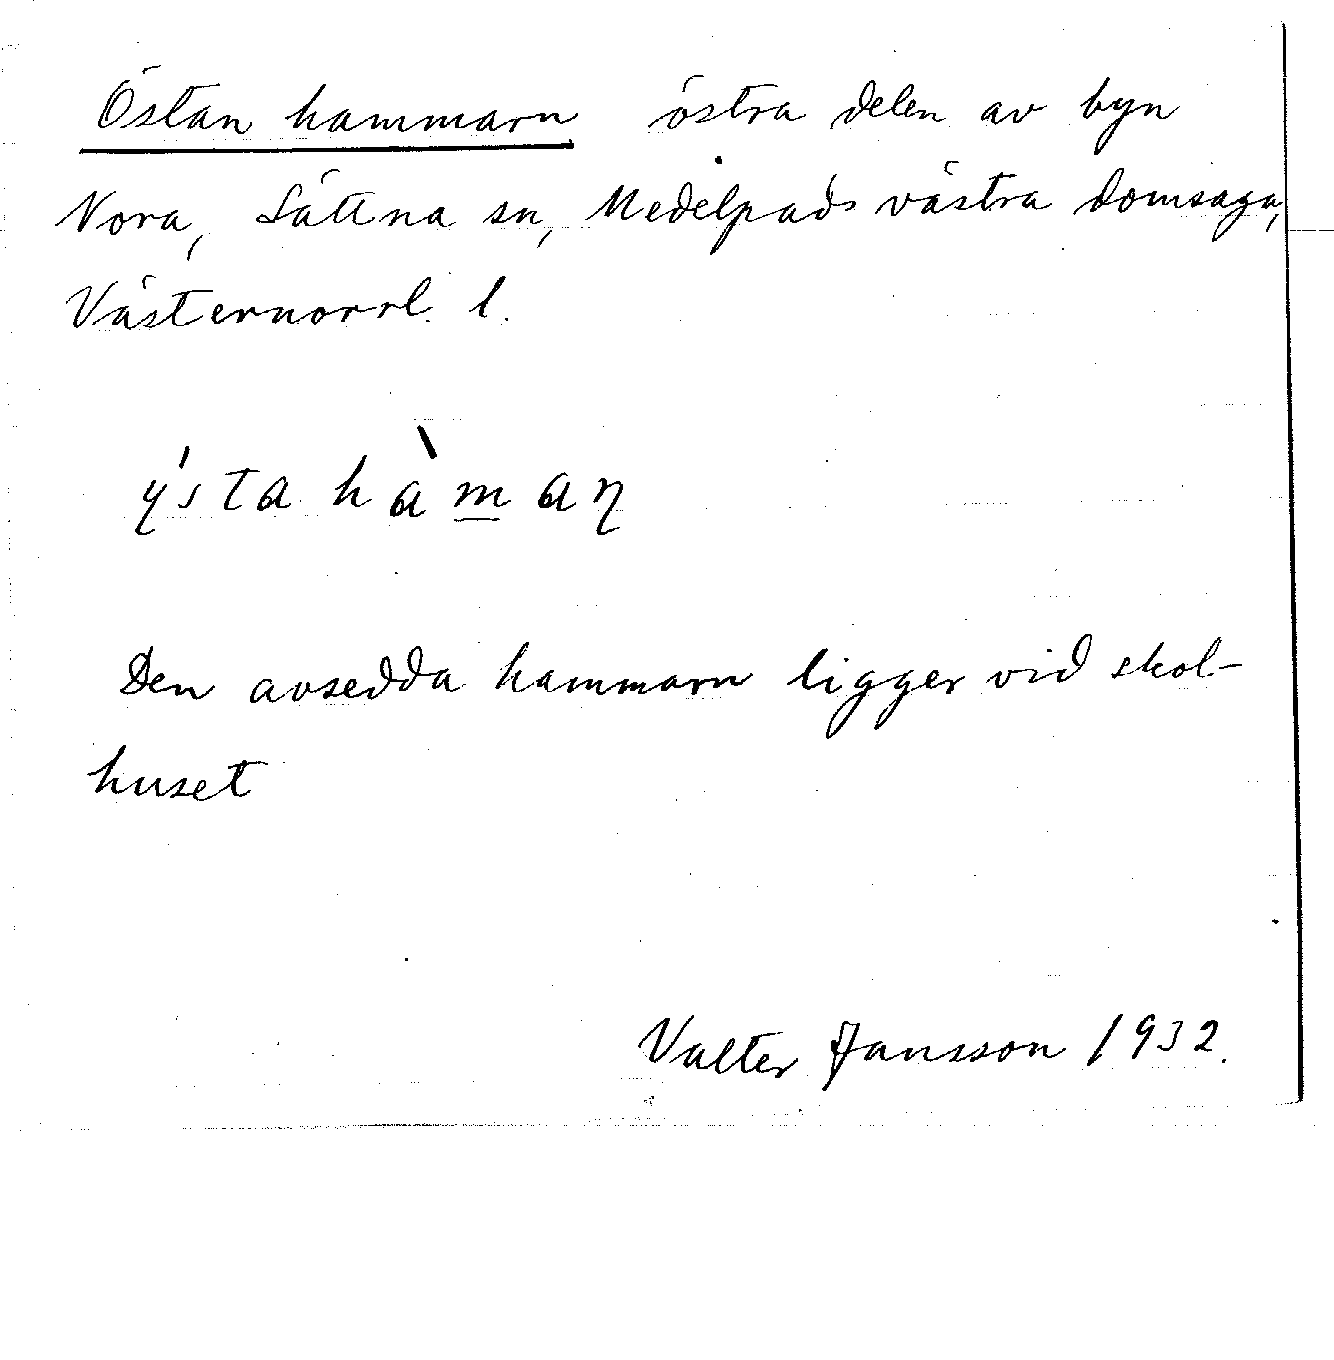 Östan hammarn östra delen av byn
Nora, Sättna sn, Medelpads västra domsaga,
Västernorrl. l.
ýsta hàm̲aɳ
Den avsedda hammarn ligger vid skol-
huset
Valter Jansson 1932.